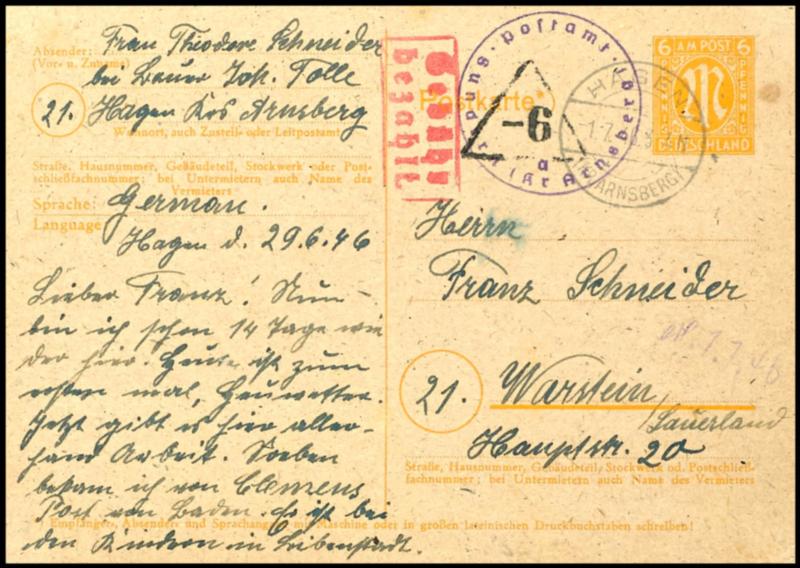 Absender: Frau Theodore Schneider
(Vor- u. Zuname) bei Bauer Joh. Tolle
21. Hagen Krs Arnsberg
Wohnort, auch Zustell- oder Leitpostamt
Straße, Hausnummer, Gebäudeteil, Stockwerk oder Post-
schließfachnummer; bei Untermietern auch Name des
Vermieters
Sprache: German.
Language
Hagen d. 29.6.46
Lieber Franz! Nun
bin ich schon 14 Tage wie
der hier. Heute ist zum
ersten mal, Heuwetter.
Jetzt gibt es hier aller-
hand Arbeit. Soeben
bekam ich von Clemens
Post von Baden. Es ist bei
den Kindern in Leibenstadt.
Empfänger, Absender und Sprachangabe mit Maschine oder in großen lateinischen Druckbuchstaben schreiben!
Gebühr
bezahlt
Postkarte
-6
a
Arnsberg
HAGEN
(ARNSBERG)
6 AM POST 6
PFENNIG PFENNIG
M
DEUTSCHLAND
Herrn
Franz Schneider
21. Warstein
Sauerland
Hauptstr. 20
Straße, Hausnummer, Gebäudeteil, Stockwerk od. Postschließ-
fachnummer; bei Untermietern auch Name des Vermieters